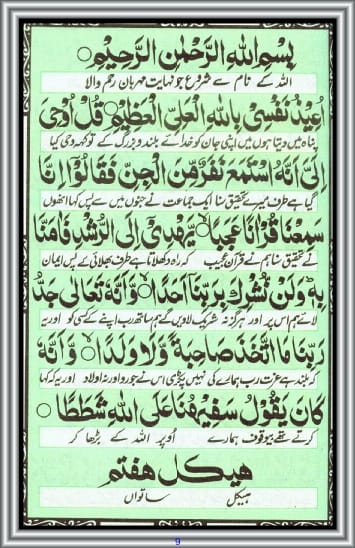 بِسْمِ اللهِ الرَّحْمٰنِ الرَّحِيْمِ ○
اللہ کے نام سے شروع جو نہایت مہربان رحم والا
اُعِيْذُ نَفْسِیْ بِاللهِ الْعَلِیِّ الْعَظِيْمِ ○ قُلْ اُوْحِیَ
پناہ میں دیتا ہوں میں اپنی جان کو خدائے بلند و بزرگ کے تو کہہ وحی کیا
اِلَیَّ اَنَّهُ اسْتَمَعَ نَفَرٌ مِّنَ الْجِنِّ فَقَالُوْٓا اِنَّا
گیا ہے طرف میرے تحقیق سنا ایک جماعت نے جنوں میں سے پس کہا انھوں
سَمِعْنَا قُرْاٰنًا عَجَبًا ○ يَّهْدِیْٓ اِلَی الرُّشْدِ فَاٰمَنَّا
نے تحقیق سنا ہم نے قرآن عجیب کہ راہ دکھلاتا ہے طرف بھلائی کے پس ایمان
بِهٖ وَلَنْ نُّشْرِكَ بِرَبِّنَآ اَحَدًا ○ وَّاَنَّهٗ تَعَالٰی جَدُّ
لائے ہم اس پر اور ہرگز نہ شریک لاویں گے ہم ساتھ رب اپنے کے کسی کو اور یہ
رَبِّنَا مَا اتَّخَذَ صَاحِبَةً وَّلَا وَلَدًا ○ وَّاَنَّهٗ
کہ بلند ہے عزت رب ہمارے کی نہیں پکڑی اس نے جورو اور نہ اولاد اور یہ کہ کہا
كَانَ يَقُوْلُ سَفِيْهُنَا عَلَی اللهِ شَطَطًا ○
کرتے تھے بیوقوف ہمارے اُوپر اللہ کے بڑھا کر
هيكل هفتم
ہیکل ساتواں
9